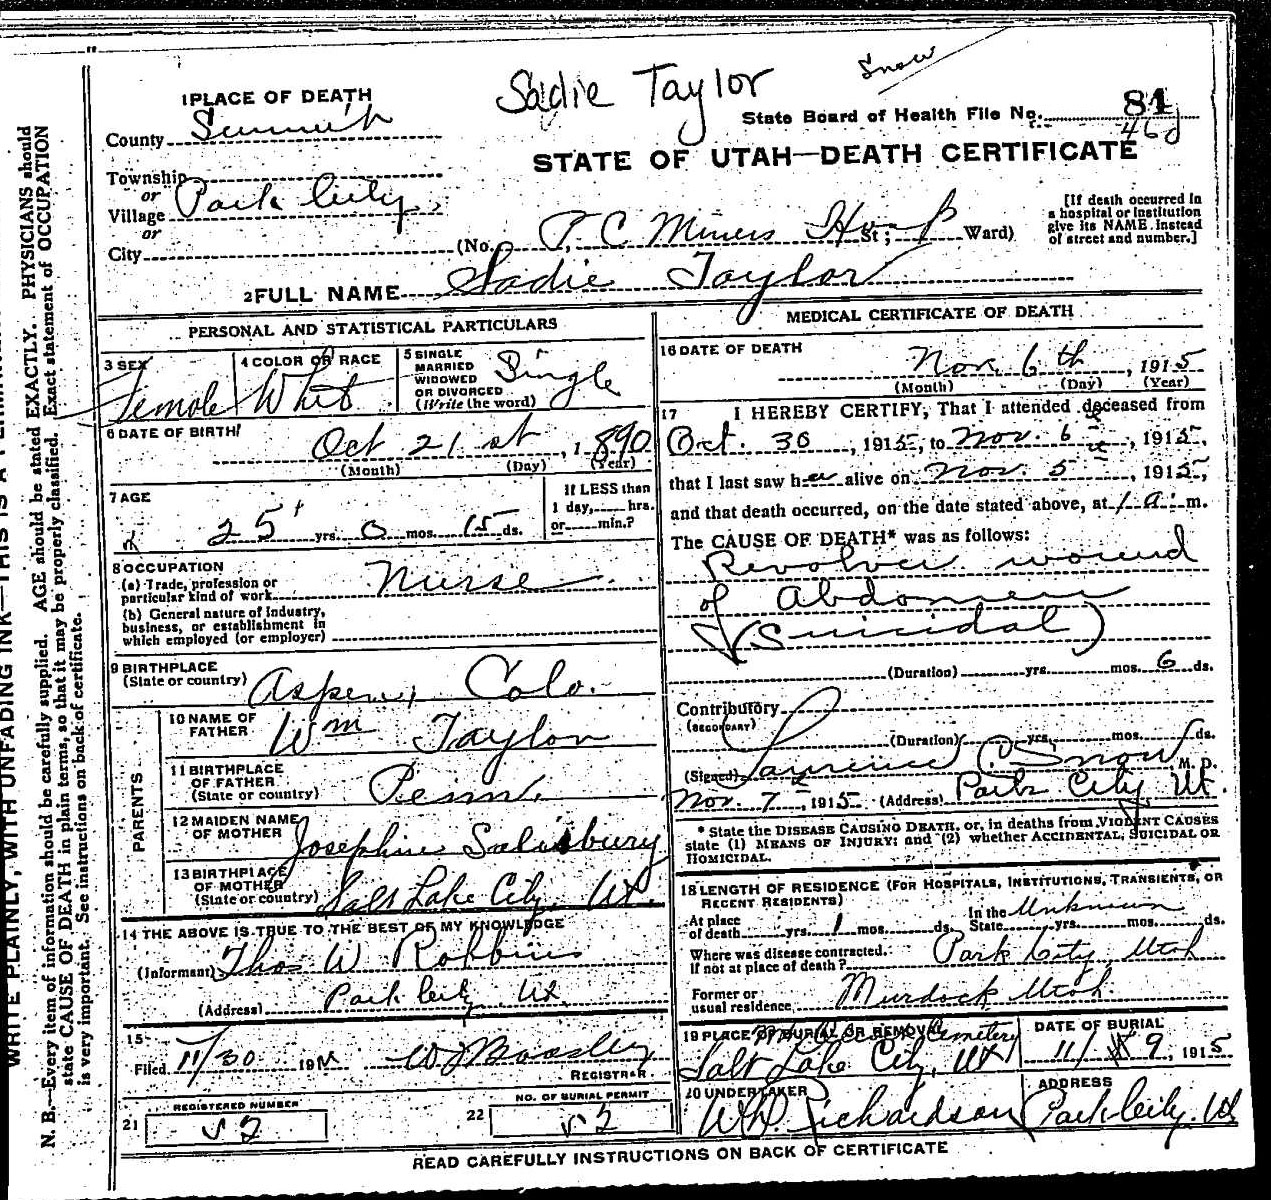 Sadie Taylor
Snow
1 PLACE OF DEATH
State Board of Health File No. 81
County Summit
STATE OF UTAH—DEATH CERTIFICATE
Township
or
Village Park City,
or
City
(No. P. C Miners Hosp St; Ward)
[If death occurred in
a hospital or institution
give its NAME instead
of street and number.]
2 FULL NAME Sadie Taylor
PERSONAL AND STATISTICAL PARTICULARS
3 SEX
Female
4 COLOR OR RACE
White
5 SINGLE
MARRIED
WIDOWED
OR DIVORCED
(Write the word)
Single
6 DATE OF BIRTH
Oct 21 st, 1890
(Month) (Day) (Year)
7 AGE
25 yrs. 0 mos. 15 ds.
If LESS than
1 day, hrs.
or min.?
8 OCCUPATION
(a) Trade, profession or
particular kind of work Nurse
(b) General nature of industry,
business, or establishment in
which employed (or employer)
9 BIRTHPLACE
(State or country) Aspen, Colo.
PARENTS
10 NAME OF
FATHER Wm Taylor
11 BIRTHPLACE
OF FATHER
(State or country) Penn.
12 MAIDEN NAME
OF MOTHER Josephine Salisbury
13 BIRTHPLACE
OF MOTHER
(State or country) Salt Lake City, Ut.
14 THE ABOVE IS TRUE TO THE BEST OF MY KNOWLEDGE
(Informant) Thos W Robbins
(Address) Park City Ut.
15
Filed 11/30 191
REGISTRAR
REGISTERED NUMBER
21 52
NO. OF BURIAL PERMIT
22 52
MEDICAL CERTIFICATE OF DEATH
16 DATE OF DEATH
Nov. 6th, 1915
(Month) (Day) (Year)
17 I HEREBY CERTIFY, That I attended deceased from
Oct. 30, 1915, to Nov. 6, 1915,
that I last saw her alive on Nov. 5, 1915,
and that death occurred, on the date stated above, at 1 a. m.
The CAUSE OF DEATH* was as follows:
Revolver wound
of Abdomen
(Suicidal)
(Duration) yrs. mos. 6 ds.
Contributory
(SECONDARY)
(Duration) yrs. mos. ds.
(Signed) Lawrence C. Snow M. D.
Nov. 7, 1915 (Address) Park City, Ut.
* State the DISEASE CAUSING DEATH, or, in deaths from VIOLENT CAUSES
state (1) MEANS OF INJURY; and (2) whether ACCIDENTAL, SUICIDAL OR
HOMICIDAL.
18 LENGTH OF RESIDENCE (FOR HOSPITALS, INSTITUTIONS, TRANSIENTS, OR
RECENT RESIDENTS)
At place
of death yrs. 1 mos. ds.
In the
State Unknown yrs. mos. ds.
Where was disease contracted.
if not at place of death? Park City, Utah
Former or
usual residence Murdock Utah
19 PLACE OF BURIAL OR REMOVAL
Cemetery
Salt Lake City, Ut
DATE OF BURIAL
11/9, 1915
20 UNDERTAKER
Richardson
ADDRESS
Park City, Ut
READ CAREFULLY INSTRUCTIONS ON BACK OF CERTIFICATE
WRITE PLAINLY, WITH UNFADING INK—THIS IS A PERMANENT
N. B.—Every item of information should be carefully supplied. AGE should be stated EXACTLY. PHYSICIANS should
state CAUSE OF DEATH in plain terms, so that it may be properly classified. Exact statement of OCCUPATION
is very important. See instructions on back of certificate.